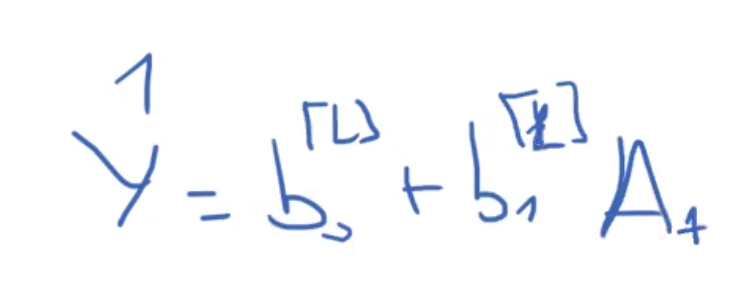 Ŷ = b₀^[L] + b₁^[L] A₁